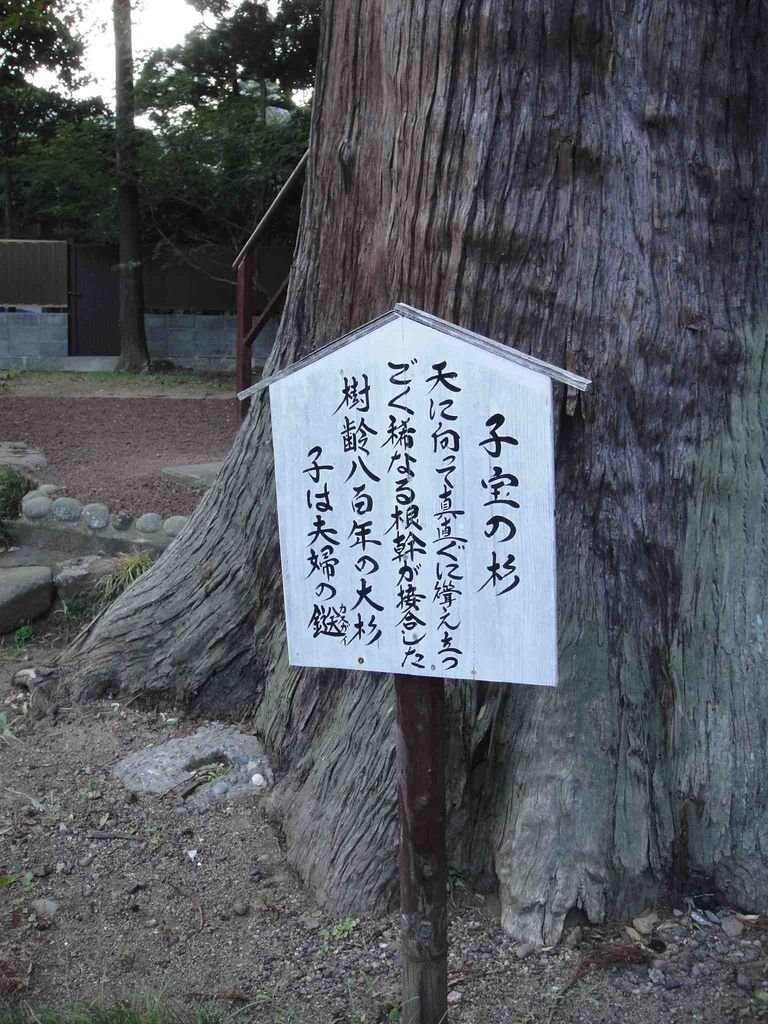 子宝の杉
天に向って真直ぐに聳え立つ
ごく稀なる根幹が接合した
樹齢八百年の大杉
子は夫婦の鎹カスガイ